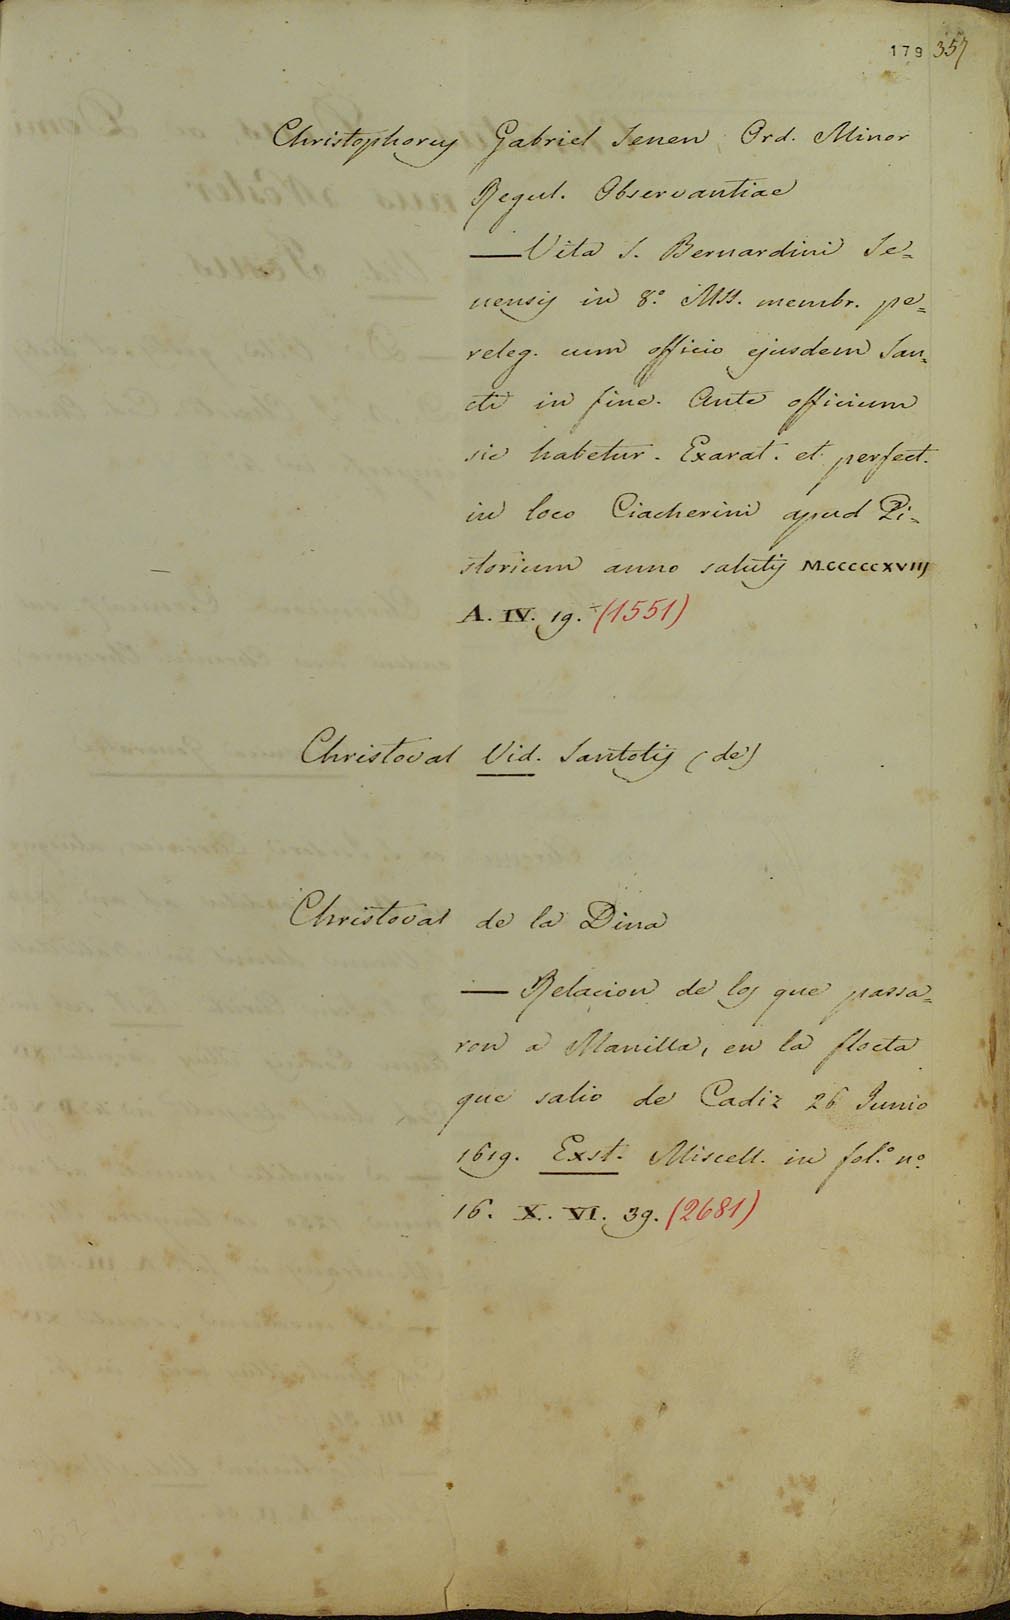 179 357
Christophorus Gabriel Senen Ord. Minor
Regul. Observantiae
— Vita S. Bernardini Se=
nensis in 8.º MSS. membr. pe=
releg. cum officio ejusdem San=
cti in fine. Ante officium
sic habetur. Exarat. et perfect.
in loco Ciacherini apud Pi=
storium anno salutis MCCCCCXVIII
A. IV. 19. (1551)
Christoval Vid. Santotis (de)
Christoval de la Dina
— Relacion de los que passa=
ron a Manilla, en la floeta
que salio de Cadiz 26 Junio
1619. Exst. Miscell. in fol.º nº
16. X. VI. 39. (2681)